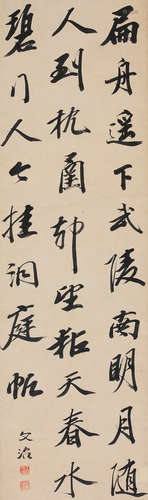 扁舟遥下武陵南明月随
人到杭图却望粘天春水
碧门人今挂洞庭帆
文治